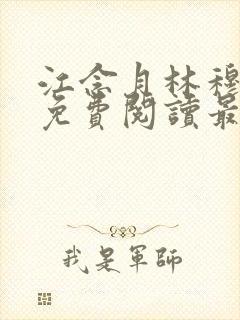 江念月林穆
免費閱讀最
我是軍師